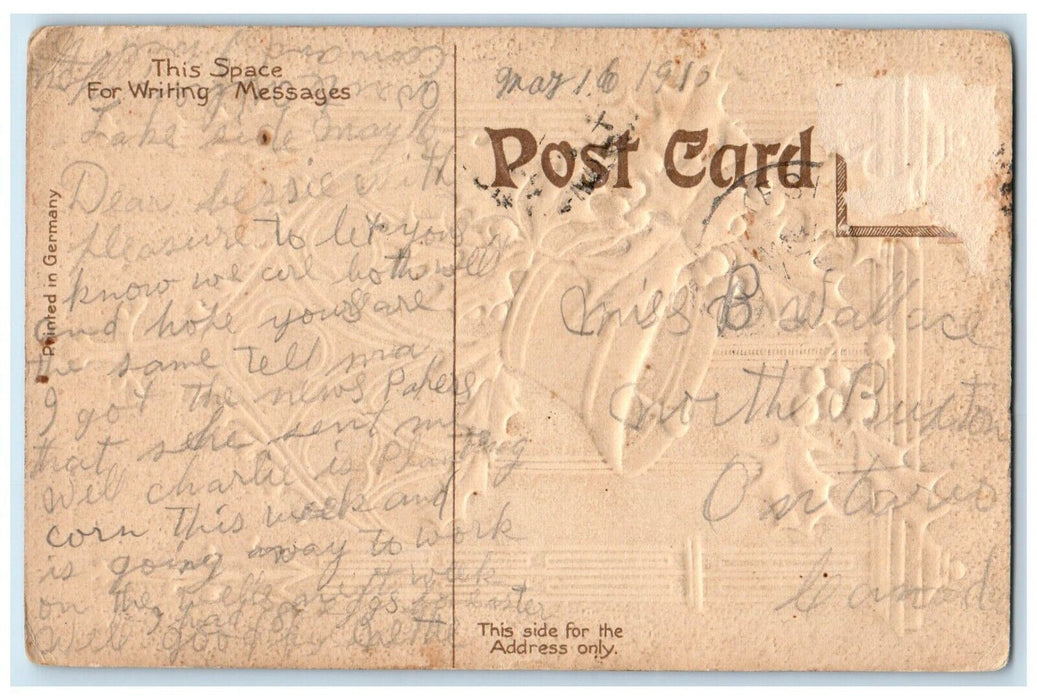 This Space
For Writing Messages
Lake side may 6
Dear bessie with
pleasure to let you
know we are both well
and hope yous are
the same Tell ma
I got the news Papers
that she sent me
Wel charlie is Planting
corn This week and
is going away to work
on the next week
I had eggs easter
Well good
Printed in Germany
May 16 191
Post Card
Miss B Wallace
Northe Buxton
Ontario
Canad
This side for the
Address only.